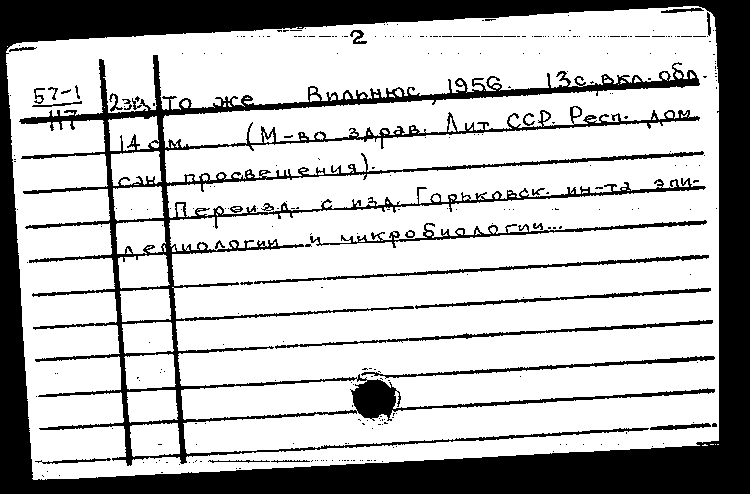 2
57-1 2экз. То же Вильнюс, 1956. 13 с. вкл. обл.
117 14 см. (М-во здрав. Лит ССР. Респ. дом
сан. просвещения).
Переизд. с изд. Горьковск. ин-та эпи-
демиологии и микробиологии...